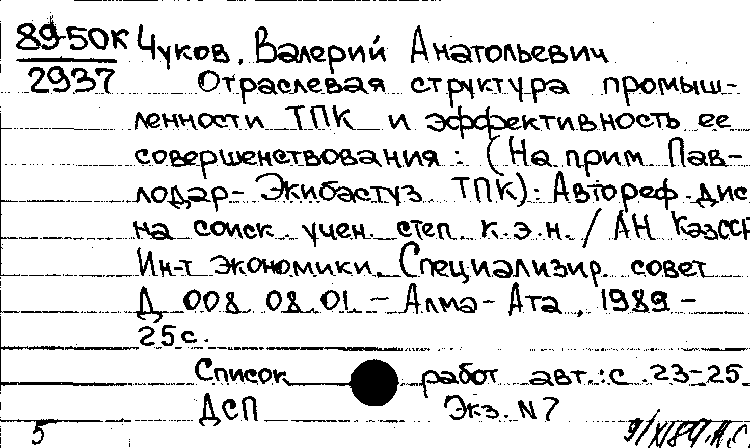 89-50К Чуков, Валерий Анатольевич
2937 Отраслевая структура промыш-
ленности ТПК и эффективность ее
совершенствования: (На прим Пав-
лодар-Экибастуз ТПК): Автореф. дис
на соиск. учен. степ к.э.н. / АН КазССР
Ин-т экономики. Специализир. совет
Д 008.08.01. - Алма-Ата, 1989 -
25с.
Список работ авт.: с. 23-25
ДСП Экз. N7
5